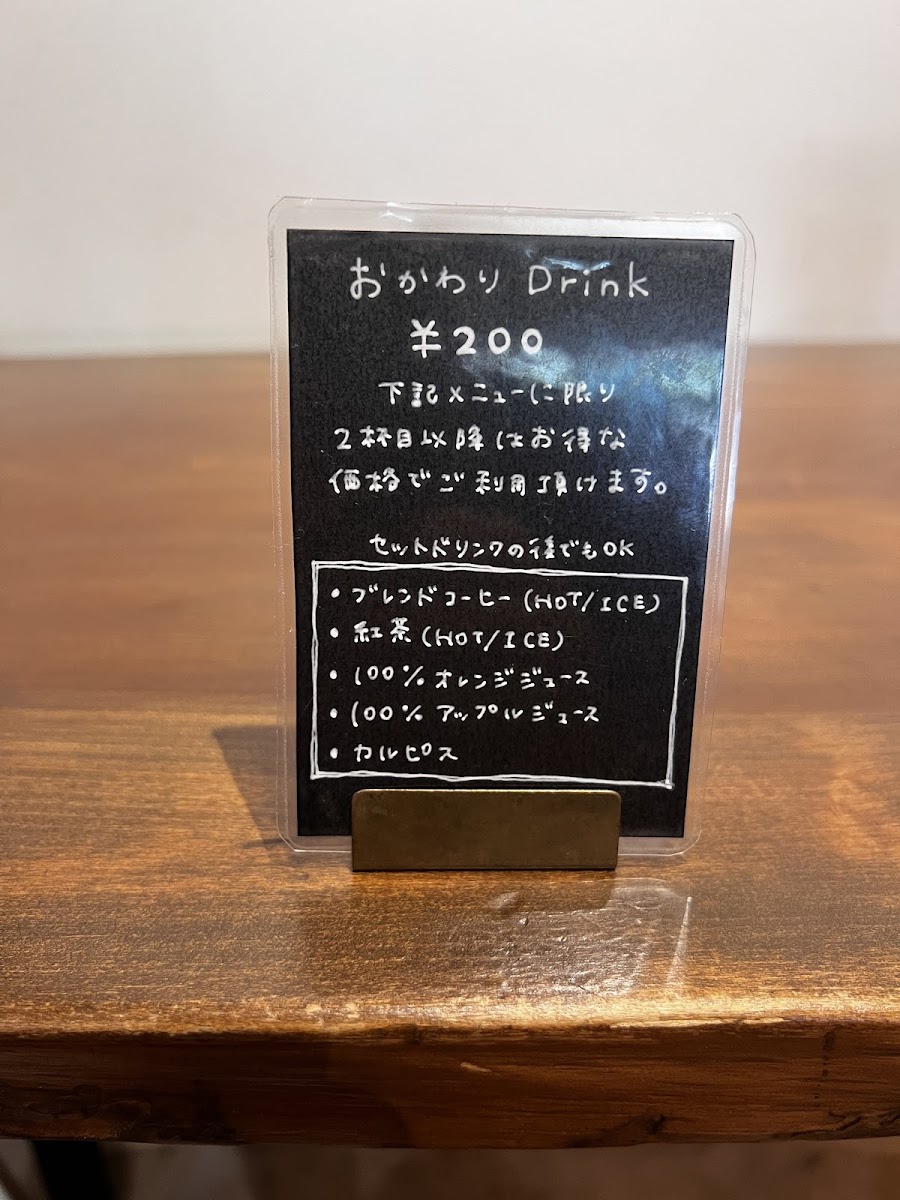 おかわり Drink
¥200
下記メニューに限り
2杯目以降はお得な
価格でご利用頂けます。
セットドリンクの後でもOK
・ブレンドコーヒー(HOT/ICE)
・紅茶(HOT/ICE)
・100%オレンジジュース
・100%アップルジュース
・カルピス